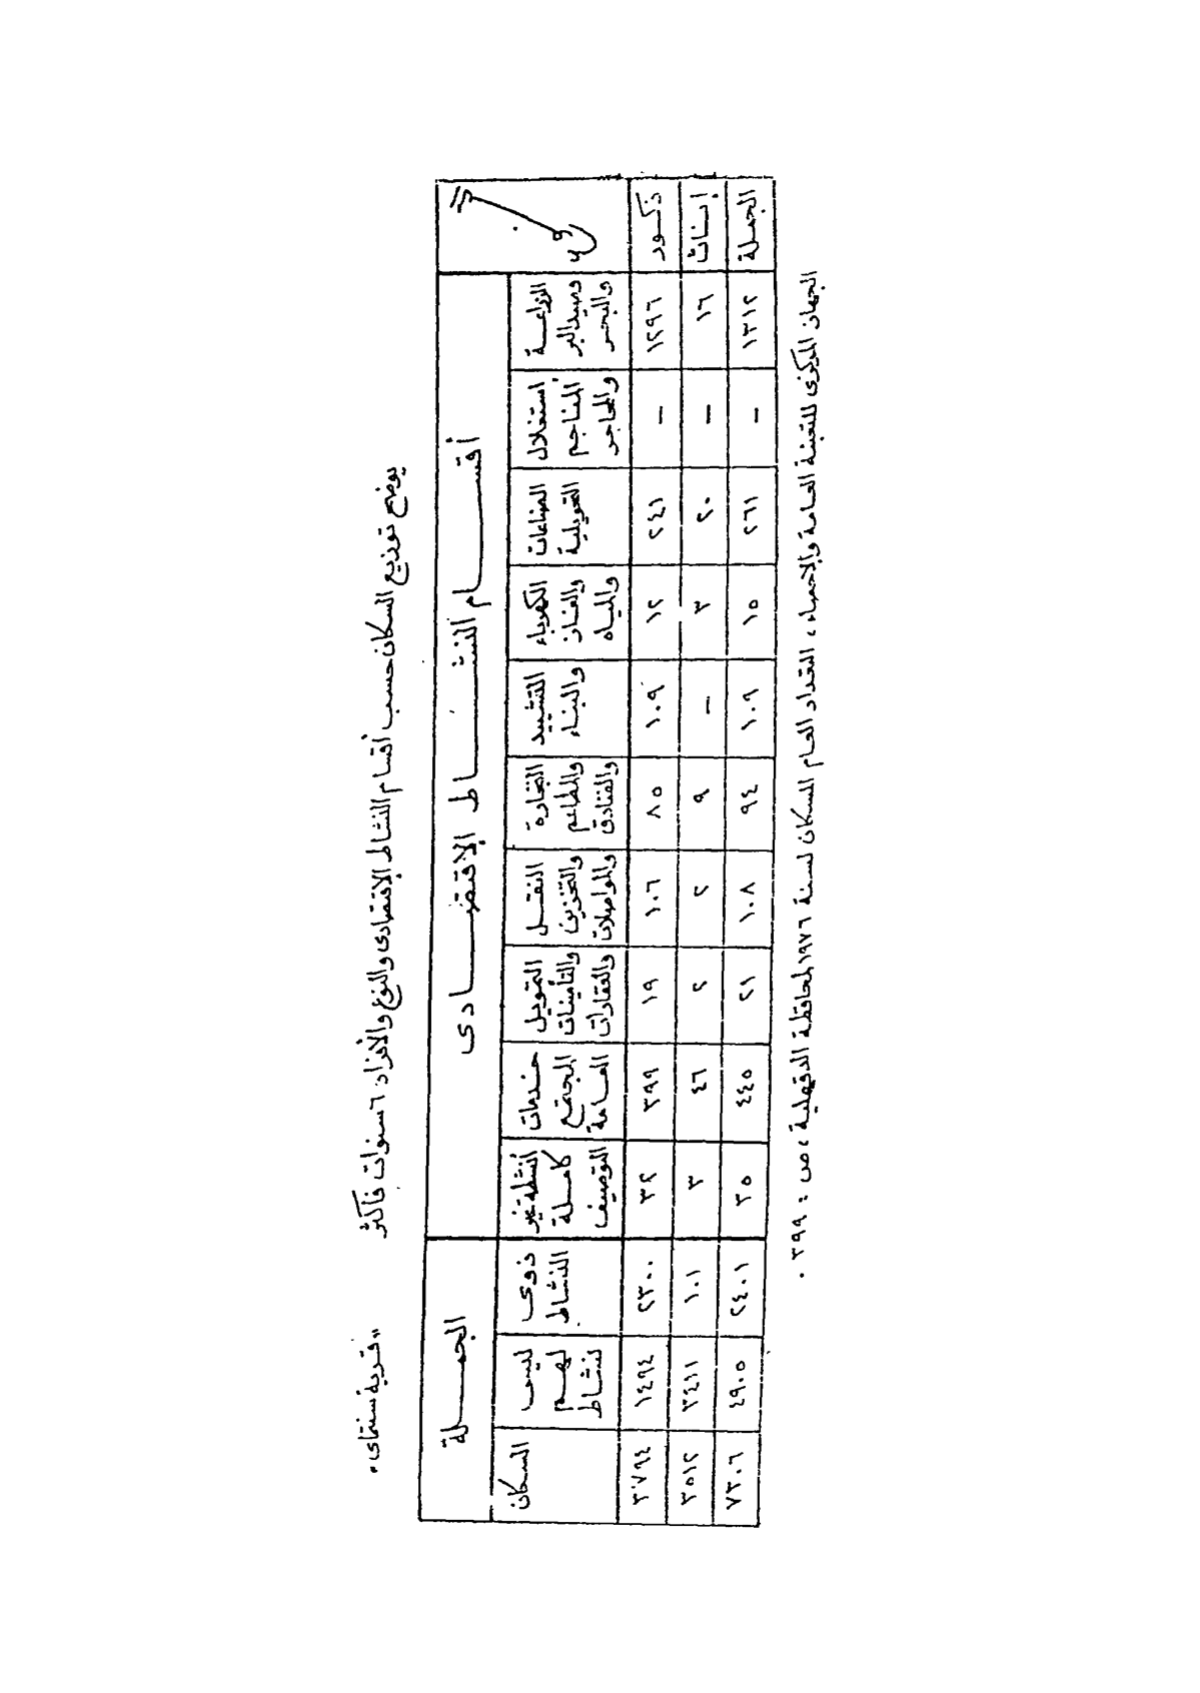 يوضح توزيع السكان حسب أقسام النشاط الإقتصادى والنوع والأفراد ٦ سنوات فأكثر
"قرية سنتماى"
أقسام النشاط الإقتصادى
الجملة
الزراعة وصيد البر والبحر
استغلال المناجم والمحاجر
الصناعات التحويلية
الكهرباء والغاز والمياه
التشييد والبناء
التجارة والمطاعم والفنادق
النقل والتخزين والمواصلات
التمويل والتأمينات والعقارات
خدمات المجتمع العامة
أنشطة غير كاملة التوصيف
ذوى النشاط
ليس لهم نشاط
السكان
ذكور ١٢٩٦ - ٢٤١ ١٢ ١٠٩ ٨٥ ١٠٦ ١٩ ٣٩٩ ٣٢ ٢٣٠٠ ١٤٩٤ ٣٧٩٤
إناث ١٦ - ٢٠ ٣ - ٩ ٢ ٢ ٤٦ ٣ ١٠١ ٣٤١١ ٣٥١٢
الجملة ١٣١٢ - ٢٦١ ١٥ ١٠٩ ٩٤ ١٠٨ ٢١ ٤٤٥ ٣٥ ٢٤٠١ ٤٩٠٥ ٧٣٠٦
الجهاز المركزى للتعبئة العامة والإحصاء، التعداد العام السكان لسنة ١٩٧٦ لمحافظة الدقهلية، ص: ٣٩٩.